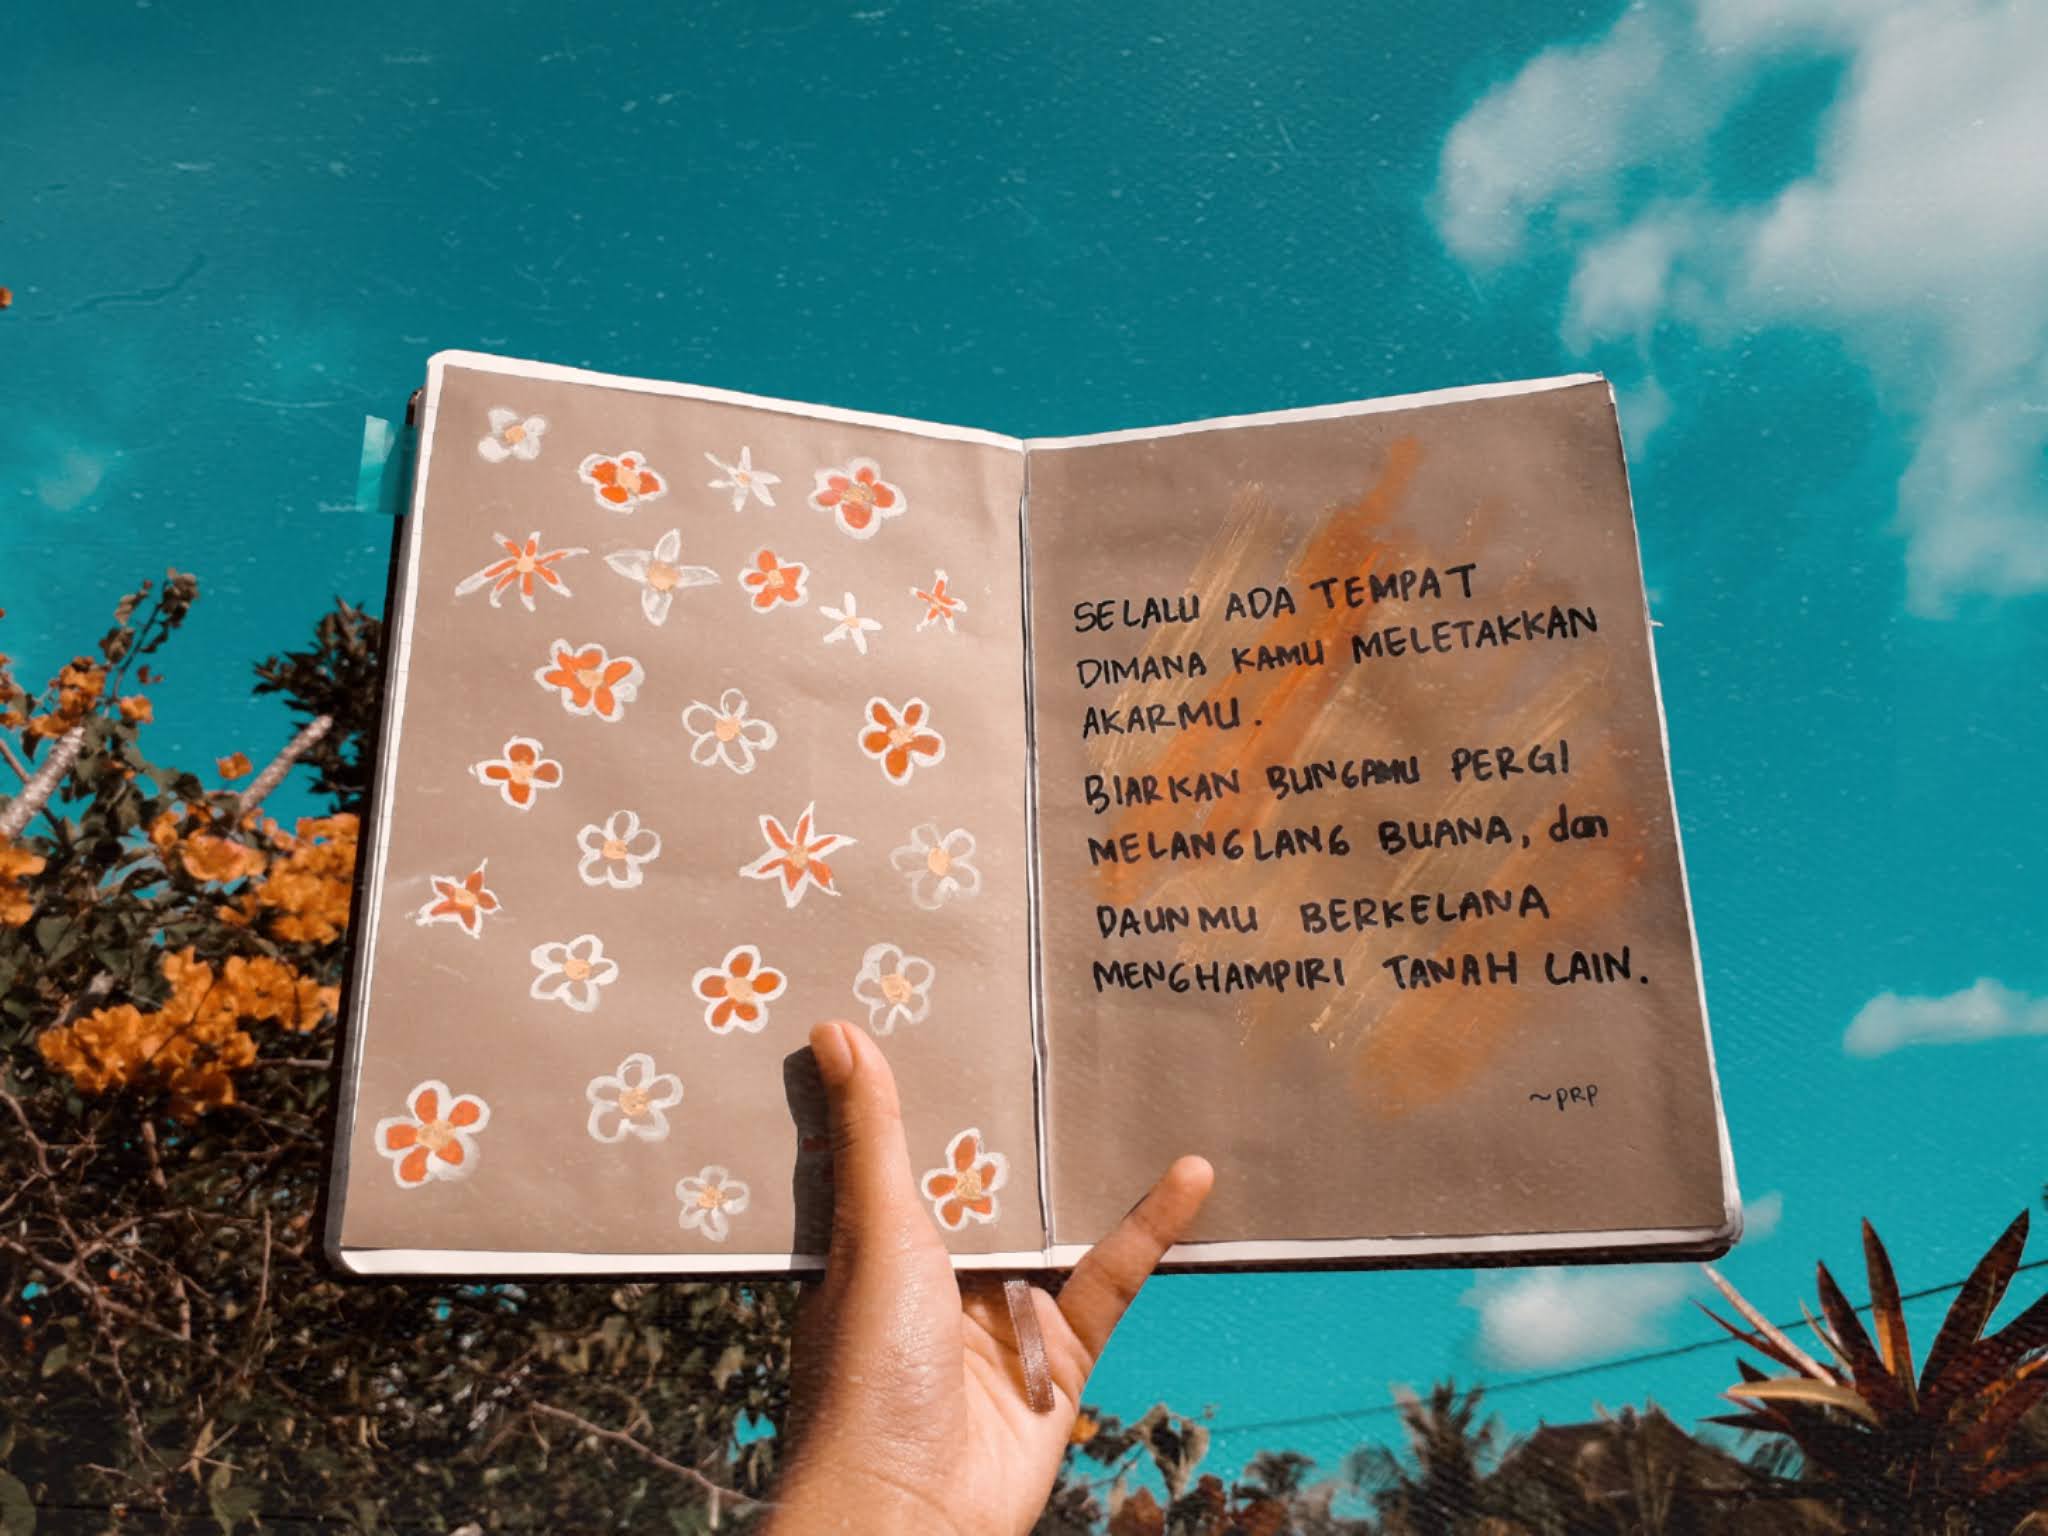 SELALU ADA TEMPAT
DIMANA KAMU MELETAKKAN
AKARMU.
BIARKAN BUNGAMU PERGI
MELANGLANG BUANA, dan
DAUNMU BERKELANA
MENGHAMPIRI TANAH LAIN.
~PRP